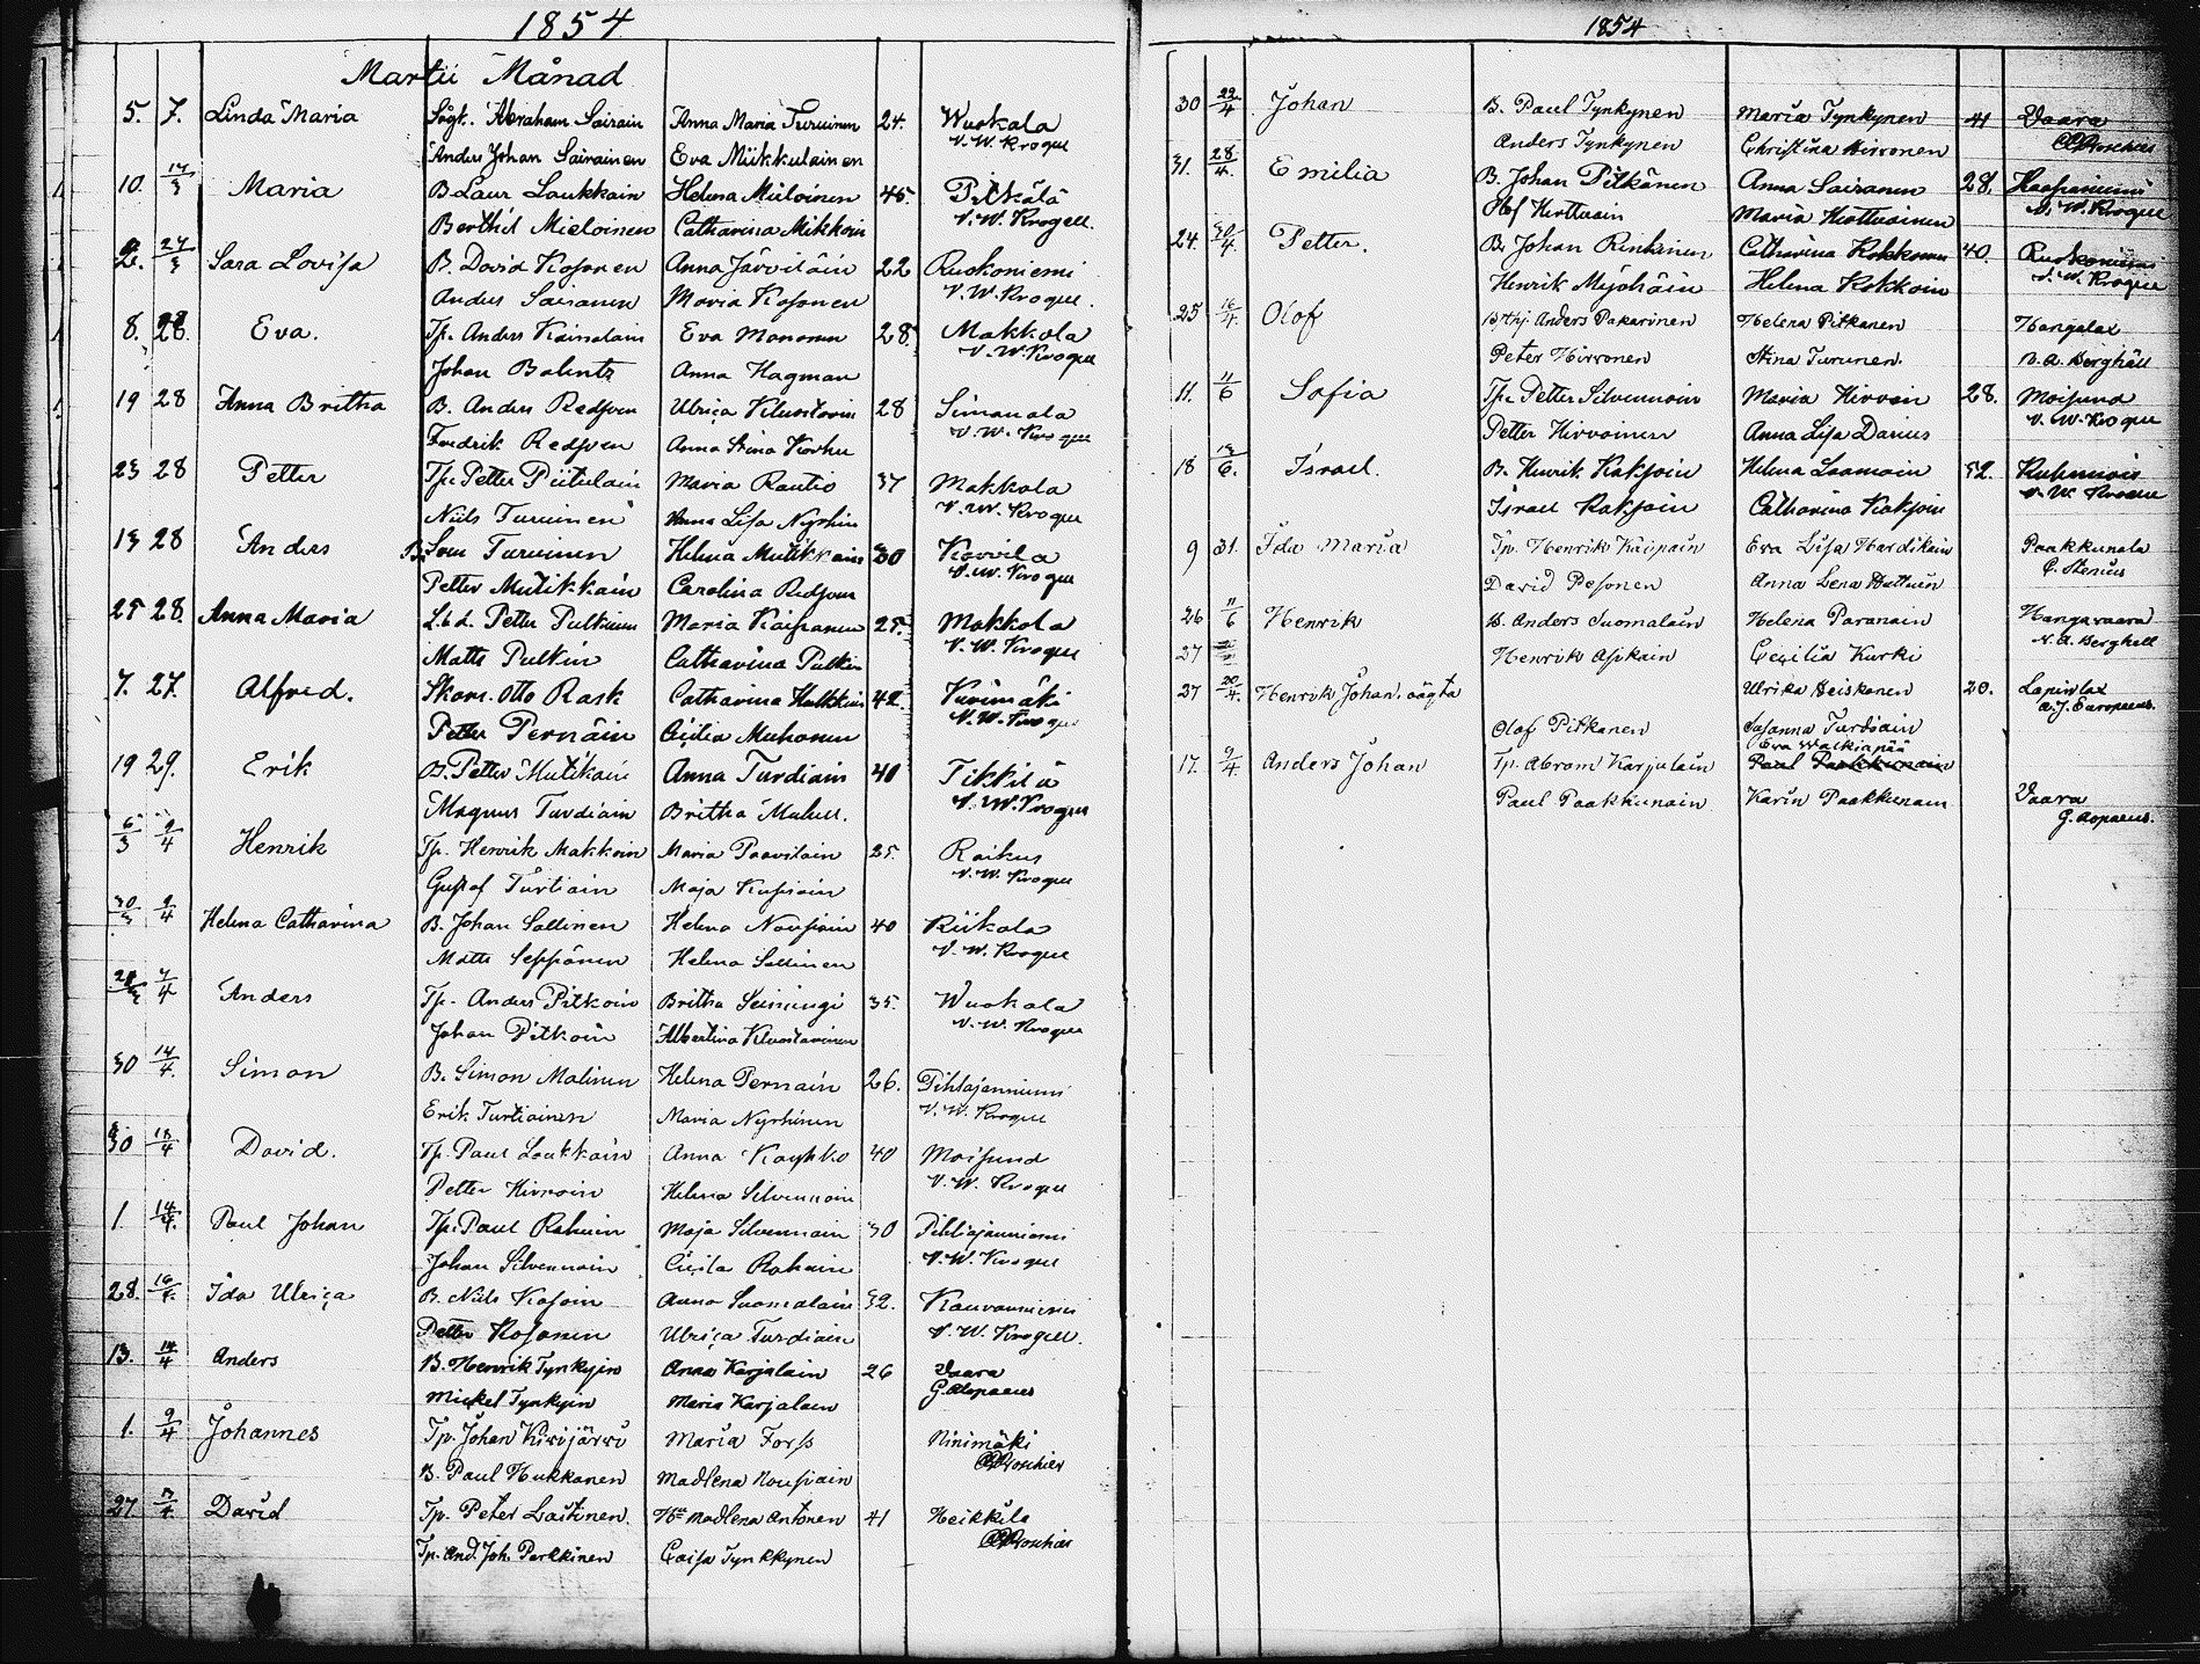 1854
Martii Månad
5. 7. Linda Maria Sågk. Abraham Sairain Anna Maria Turuinen 24. Wuokala
Anders Johan Sairainen Eva Miikkulainen V. W. Krogell
10. 17/3 Maria B. Laur Laukkain Helena Mieloinen 45. Pitkälä
Berthil Mieloinen Catharina Mikkoin V. W. Krogell.
2. 27/3 Sara Lovisa B. David Kosonen Anna Järviläin 22 Ruokoniemi
Anders Sairanen Maria Kosonen V. W. Krogell.
8. 28. Eva. Tp. Anders Kainolain Eva Mononen 28. Makkola
Johan Bahntz Anna Hagman V. W. Krogell
19 28 Anna Britha B. Anders Redsven Ulrica Kluustarin 28 Simanala
Fredrik Redsven Anna Stina Korhu V. W. Krogell
23 28 Petter Tp. Petter Piitulain Maria Rautio 37 Makkola
Niils Turuinen Anna Lisa Nyrhin V. W. Krogell
13 28 Anders B. Sven Turuinen Helena Mutikkain 30 Kovvila
Petter Mutikkain Carolina Redsven V. W. Krogell
25 28. Anna Maria L.b.d. Petter Pulkinen Maria Kaipanen 25. Makkola
Matts Pulkin Catharina Pulkin V. W. Krogell
7. 27. Alfred. Skom. Otto Rask Catharina Hulkkin 42. Kurimäki
Petter Pernäin Cicilia Muhonen V. W. Krogell
19 29. Erik B. Petter Mutikain Anna Turdiain 40 Tikkilä
Magnus Turdiain Britha Muhell. V. W. Krogell
6/3 9/4 Henrik Tp. Henrik Makkoin Maria Paavilain 25. Raikus
Gustaf Turtiain Maja Kupiain V. W. Krogell
30/3 9/4 Helena Catharina B. Johan Sallinen Helena Nousiain 40 Riikola
Matts Seppänen Helena Sallinen V. W. Krogell
7/4 Anders Tp. Anders Pitkoin Britha Seiningi 35. Wuokala
Johan Pitkoin Albertina Kluustarinen V. W. Krogell
30 14/4. Simon B. Simon Malinen Helena Pernäin 26. Pihlajanniemi
Erik Turtiainen Maria Nyrhinen V. W. Krogell
30 13/4 David. Tp. Paul Loukkain Anna Kayhko 40 Moisund
Petter Hirvoin Helena Silvennoin V. W. Krogell
1. 14/4. Paul Johan Tp. Paul Rahuin Maja Silvennoin 30 Pihlajanniemi
Johan Silvennoin Cicila Rahuin V. W. Krogell
28. 16/4. Ida Ulrica B. Nils Kosoin Anna Suomalain 32. Kauvanniemi
Petter Kosonen Ulrica Turdiain V. W. Krogell.
13. 14/4 Anders B. Henrik Tynkyin Anna Karjalain 26 Vaara
Mickel Tynkyin Maria Karjalain G. Alopaeus
1. 9/4 Johannes Tp. Johan Kivijärvi Maria Forss Ninimäki
B. Paul Hukkanen Madlena Nousiain Broschier
27. 17/4. David Tp. Peter Laitinen. Hu Madlena Antonen 41 Heikkilä
Tp. And. Joh. Parkkinen Caisa Tynkkynen Broschier
1854
30 22/4 Johan B. Paul Tynkynen Maria Tynkynen 41 Vaara
Anders Tynkynen Christina Hirvonen Broschier
31. 28/4. Emilia B. Johan Pitkänen Anna Sairanen 28. Haapaniemi
Olof Herttuain Maria Herttuainen V. W. Krogell
24. 30/4. Petter. B. Johan Rinkinen Catharina Kokkonen 40. Ruokoniemi
Henrik Myöhäin Helena Kokkoin V. W. Krogell
25 16/4. Olof Bdhj. Anders Pakarinen Helena Pitkanen Hangalax
Peter Hirvonen Stina Turunen. N. A. Berghäll
11. 11/6 Sofia Tp. Petter Silvennoin Maria Hirvoin 28. Moisund
Petter Hirvoinen Anna Lisa Darius V. W. Krogell
18 13/6. Israel. B. Henrik Kaksoin Helena Laamain 32. Kuhmois
Israel Kaksoin Catharina Kaksoin V. W. Krogell
9 31. Ida Maria Tp. Henrik Kaipain Eva Lisa Hardikain Paakkunala
David Pesonen Anna Lena Hattuin C. Stenius
26 11/6 Henrik B. Anders Suomalain Helena Paranain Hangavaara
27 Henrik Asikain Cecilia Kurki N. A. Berghell
27 20/4. Henrik Johan. oägta Ulrika Heiskanen 20. Lapinlax
Olof Pitkanen Susanna Turdiain A. J. Europaeus.
17. 9/4. Anders Johan Tp. Abram Karjulain Eva Walkiapää
Paul Paakkunain
Paul Paakkunain Karin Paakkunain Vaara
G. Alopaeus.